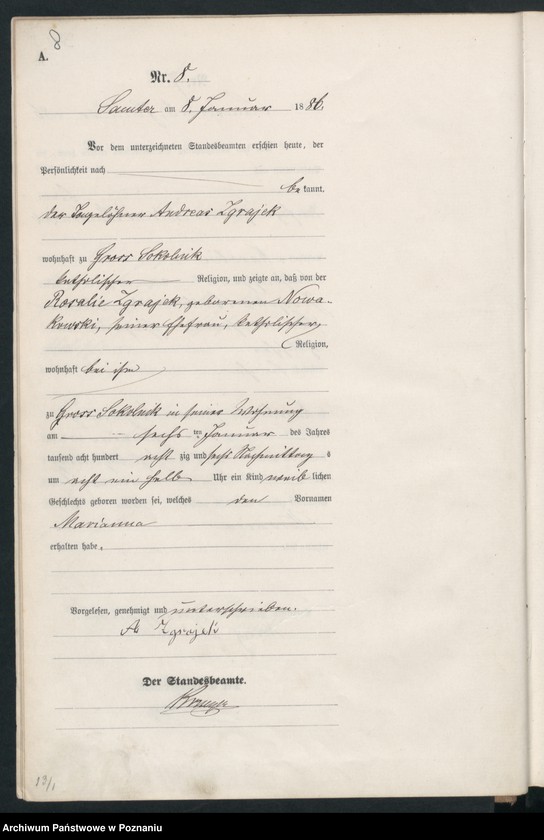 8
A.
Nr. 8.
Samter am 8. Januar 1886.
Vor dem unterzeichneten Standesbeamten erschien heute, der
Persönlichkeit nach
be kannt.
der Tagelöhner Andreas Zgrajek
wohnhaft zu Gross Sokolnik
katholischer Religion, und zeigte an, daß von der
Rosalie Zgrajek, geborenen Nowa-
kowski, seiner Ehefrau, katholischer
Religion,
wohnhaft bei ihm
zu Gross Sokolnik in seiner Wohnung
am sechs ten Januar des Jahres
tausend acht hundert acht zig und sechs Nachmittag s
um acht ein halb Uhr ein Kind weib lichen
Geschlechts geboren worden sei, welches den Vornamen
Marianna
erhalten habe.
Vorgelesen, genehmigt und unterschrieben.
A Zgrajek
Der Standesbeamte.
Archiwum Państwowe w Poznaniu